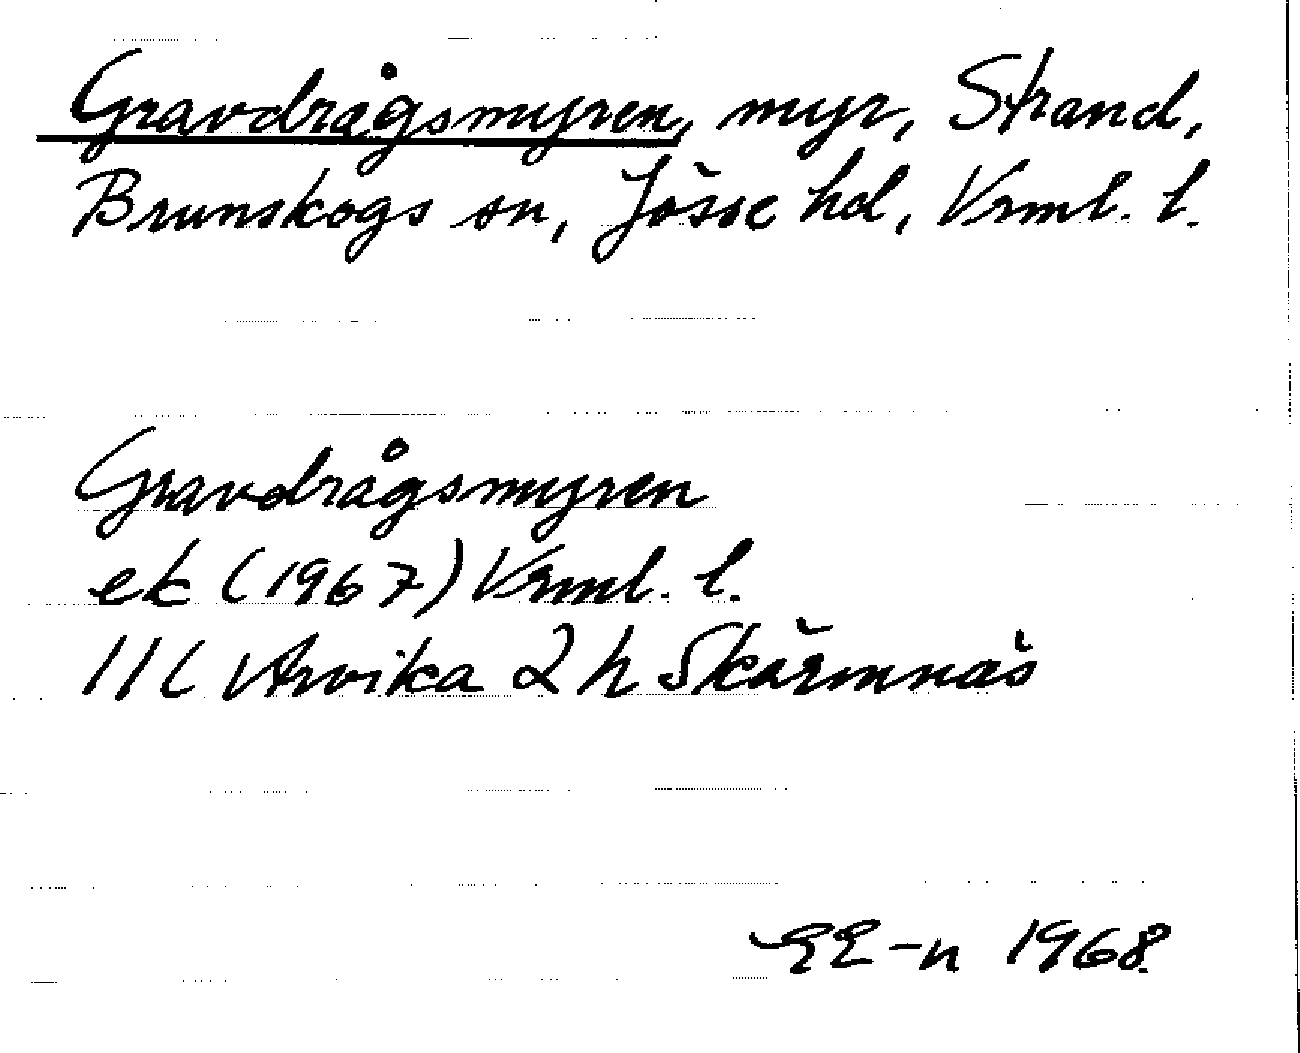 Gravdrågsmyren, myr, Strand,
Brunskogs sn, Jösse hd, Vrml. l.
Gravdrågsmyren
ek (1967) Vrml. l.
11C Arvika 2 h Skärmnäs
EE-n 1968.